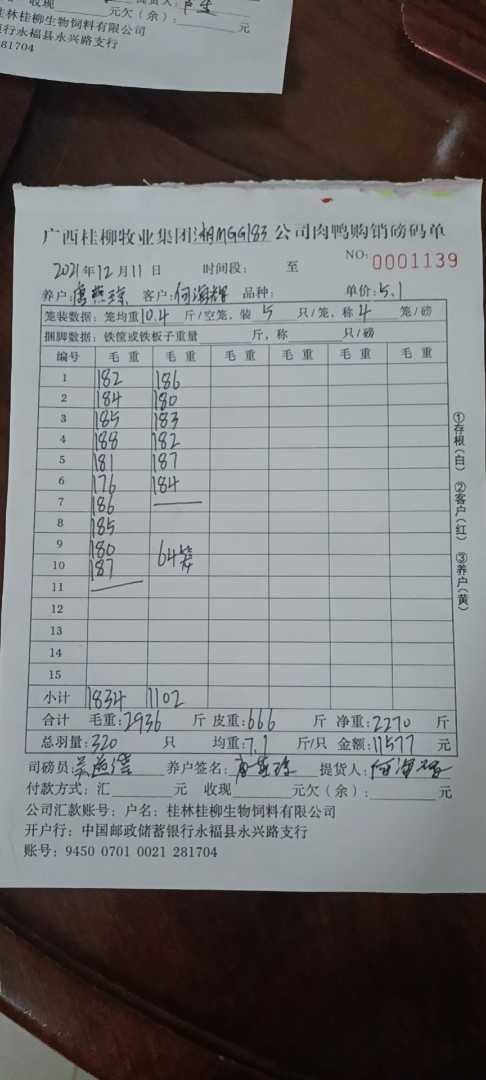 收现 元欠(余): 元
桂林桂柳生物饲料有限公司
银行永福县永兴路支行
81704
广西桂柳牧业集团湘MGG183公司肉鸭购销磅码单
2021年12月11日 时间段: 至 NO: 0001139
养户: 客户:何海辉 品种: 单价:5.1
笼装数据:笼均重10.4斤/空笼,装5只/笼,称4笼/磅
捆脚数据:铁筐或铁板子重量 斤,称 只/磅
编号 毛重 毛重 毛重 毛重 毛重 毛重
1 182 186
2 184 180
3 185 183
4 188 182
5 181 187
6 176 184
7 186
8 185
9 180 64笼
10 187
11
12
13
14
15
小计 1834 1102
合计 毛重:2936 斤 皮重:666 斤 净重:2270 斤
总羽量:320 只 均重:7.1 斤/只 金额:11577 元
司磅员: 养户签名: 提货人:何海辉
付款方式:汇 元 收现 元欠(余): 元
公司汇款账号:户名:桂林桂柳生物饲料有限公司
开户行:中国邮政储蓄银行永福县永兴路支行
账号:9450 0701 0021 281704
①存根(白) ②客户(红) ③养户(黄)